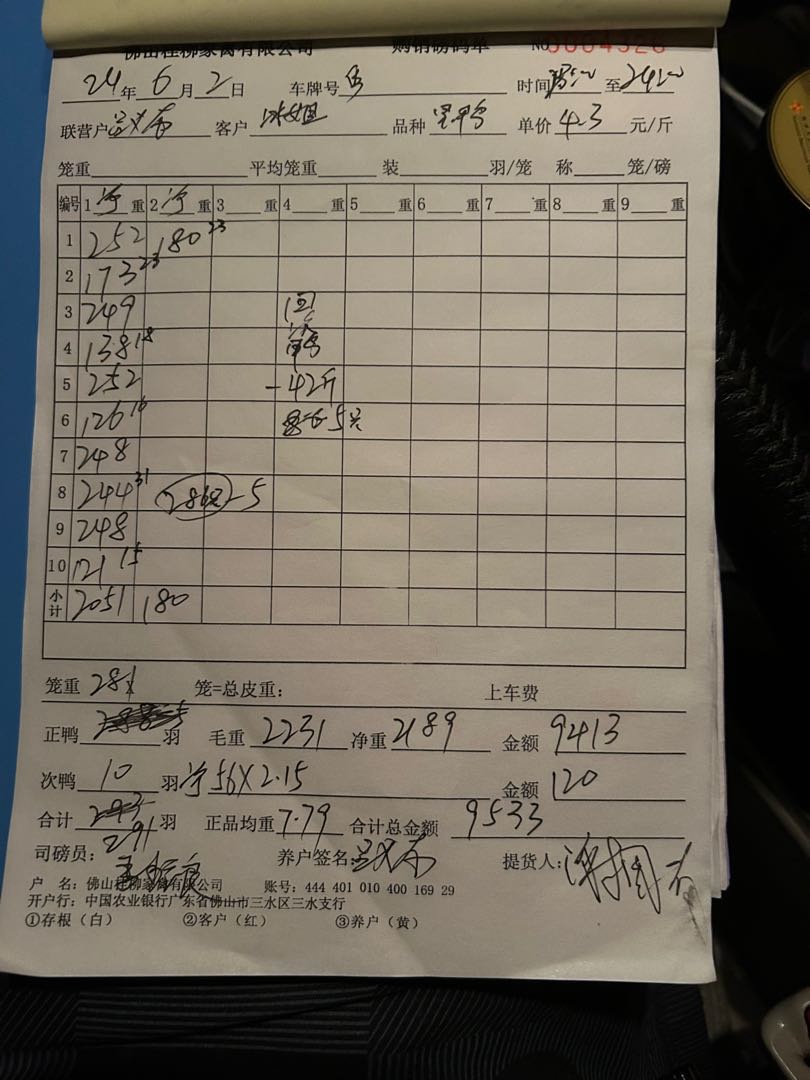 佛山桂柳家禽有限公司 购销磅码单 No 0004326
24年6月2日 车牌号 时间 至2420
联营户 客户 冰姐 品种 单价 4.3 元/斤
笼重 平均笼重 装 羽/笼 称 笼/磅
编号 1净重 2净重 3 重 4 重 5 重 6 重 7 重 8 重 9 重
1 252 180 23
2 173 23
3 249 回
4 138 18
5 252 -42斤
6 126 16 5只
7 248
8 244 31 286只-5
9 248
10 121 15
小计 2051 180
笼重 281 笼=总皮重: 上车费
正鸭 羽 毛重 2231 净重 2189 金额 9413
次鸭 10 羽 净56X2.15 金额 120
合计 291 羽 正品均重 7.79 合计总金额 9533
司磅员: 养户签名: 提货人:
户 名: 佛山桂柳家禽有限公司 账号: 444 401 010 400 169 29
开户行: 中国农业银行广东省佛山市三水区三水支行
①存根(白) ②客户(红) ③养户(黄)